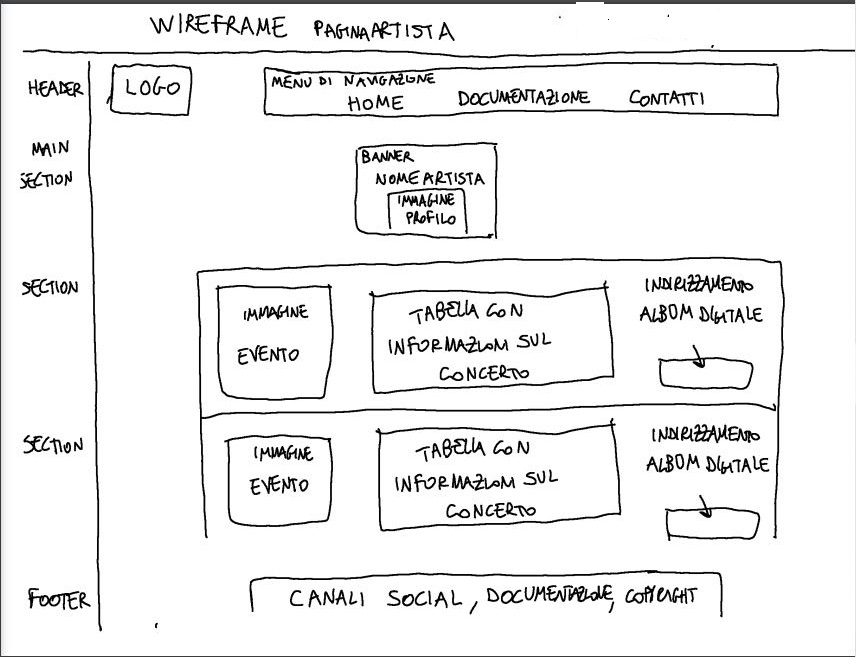 WIREFRAME PAGINA ARTISTA
HEADER
LOGO
MENU DI NAVIGAZIONE
HOME DOCUMENTAZIONE CONTATTI
MAIN
SECTION
BANNER
NOME ARTISTA
IMMAGINE
PROFILO
SECTION
IMMAGINE
EVENTO
TABELLA CON
INFORMAZIONI SUL
CONCERTO
INDIRIZZAMENTO
ALBUM DIGITALE
SECTION
IMMAGINE
EVENTO
TABELLA CON
INFORMAZIONI SUL
CONCERTO
INDIRIZZAMENTO
ALBUM DIGITALE
FOOTER
CANALI SOCIAL, DOCUMENTAZIONE, COPYRIGHT